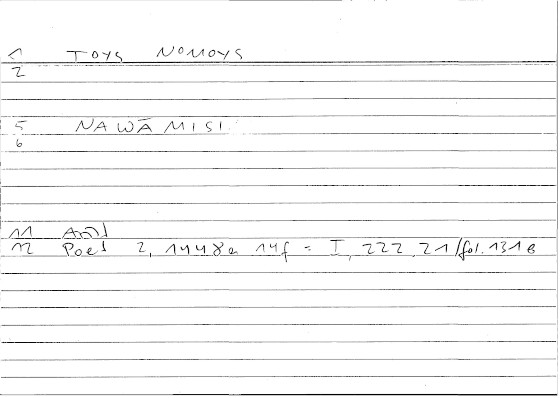 1 TOYS NOMOYS
2
5 NAWĀMISI
6
11 Arist
12 Poet 2, 1448a 14f = I, 222.21/fol. 131b